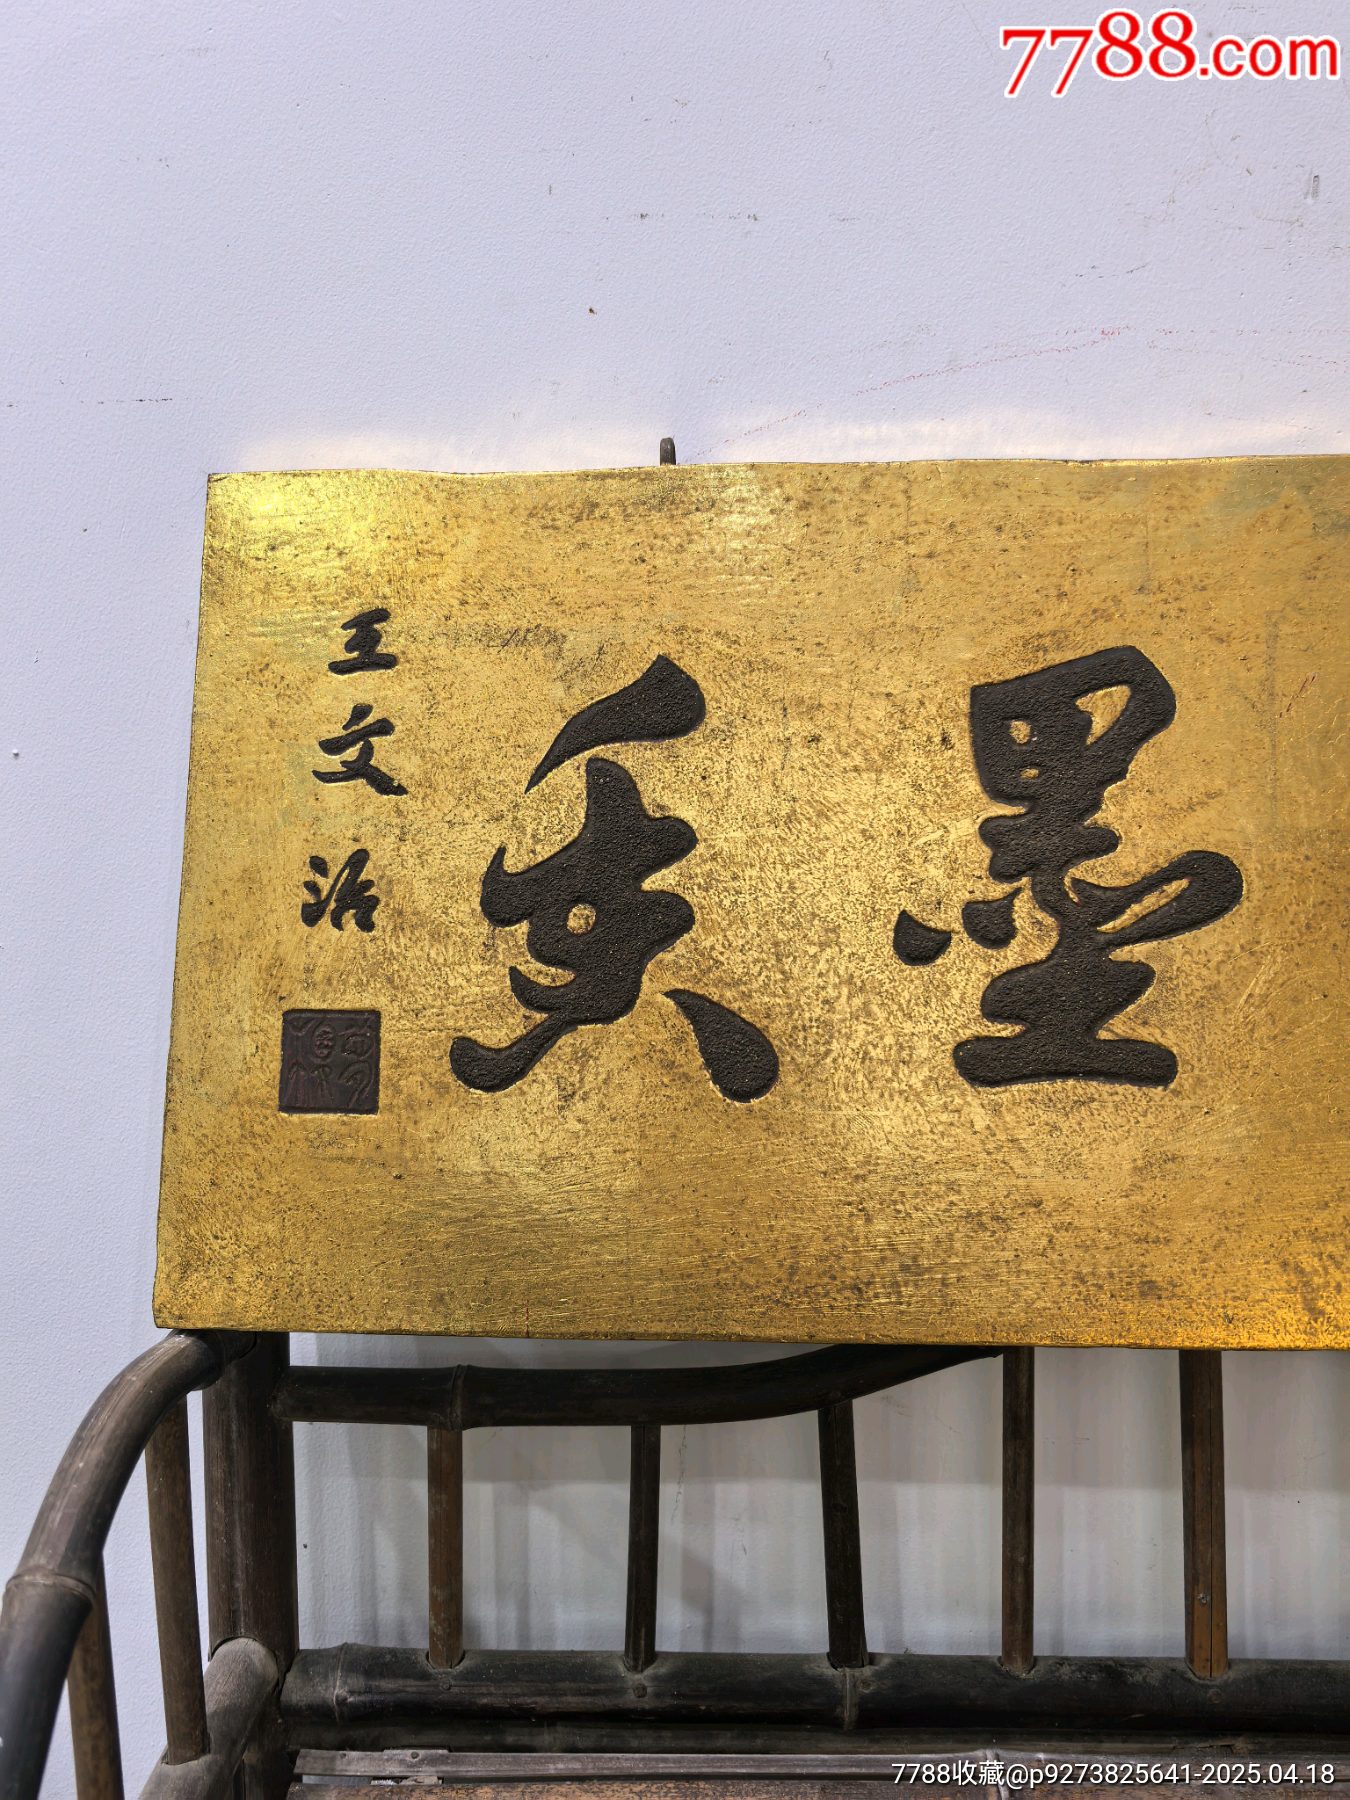 7788.com
墨香
王文治
7788收藏@p9273825641-2025.04.18